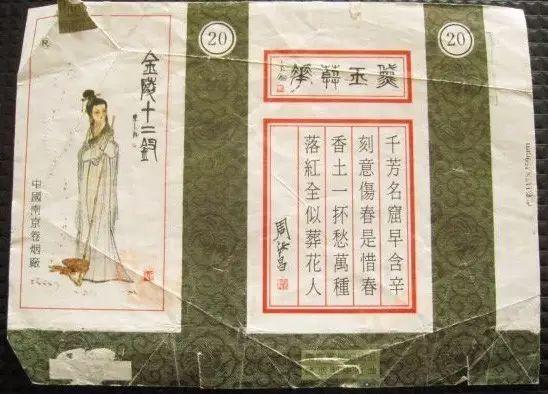 金陵十二釵
中國南京卷烟廠
20
黛玉葬花
千芳名窟早含辛
刻意傷春是惜春
香土一抔愁萬種
落紅全似葬花人
周汝昌
20